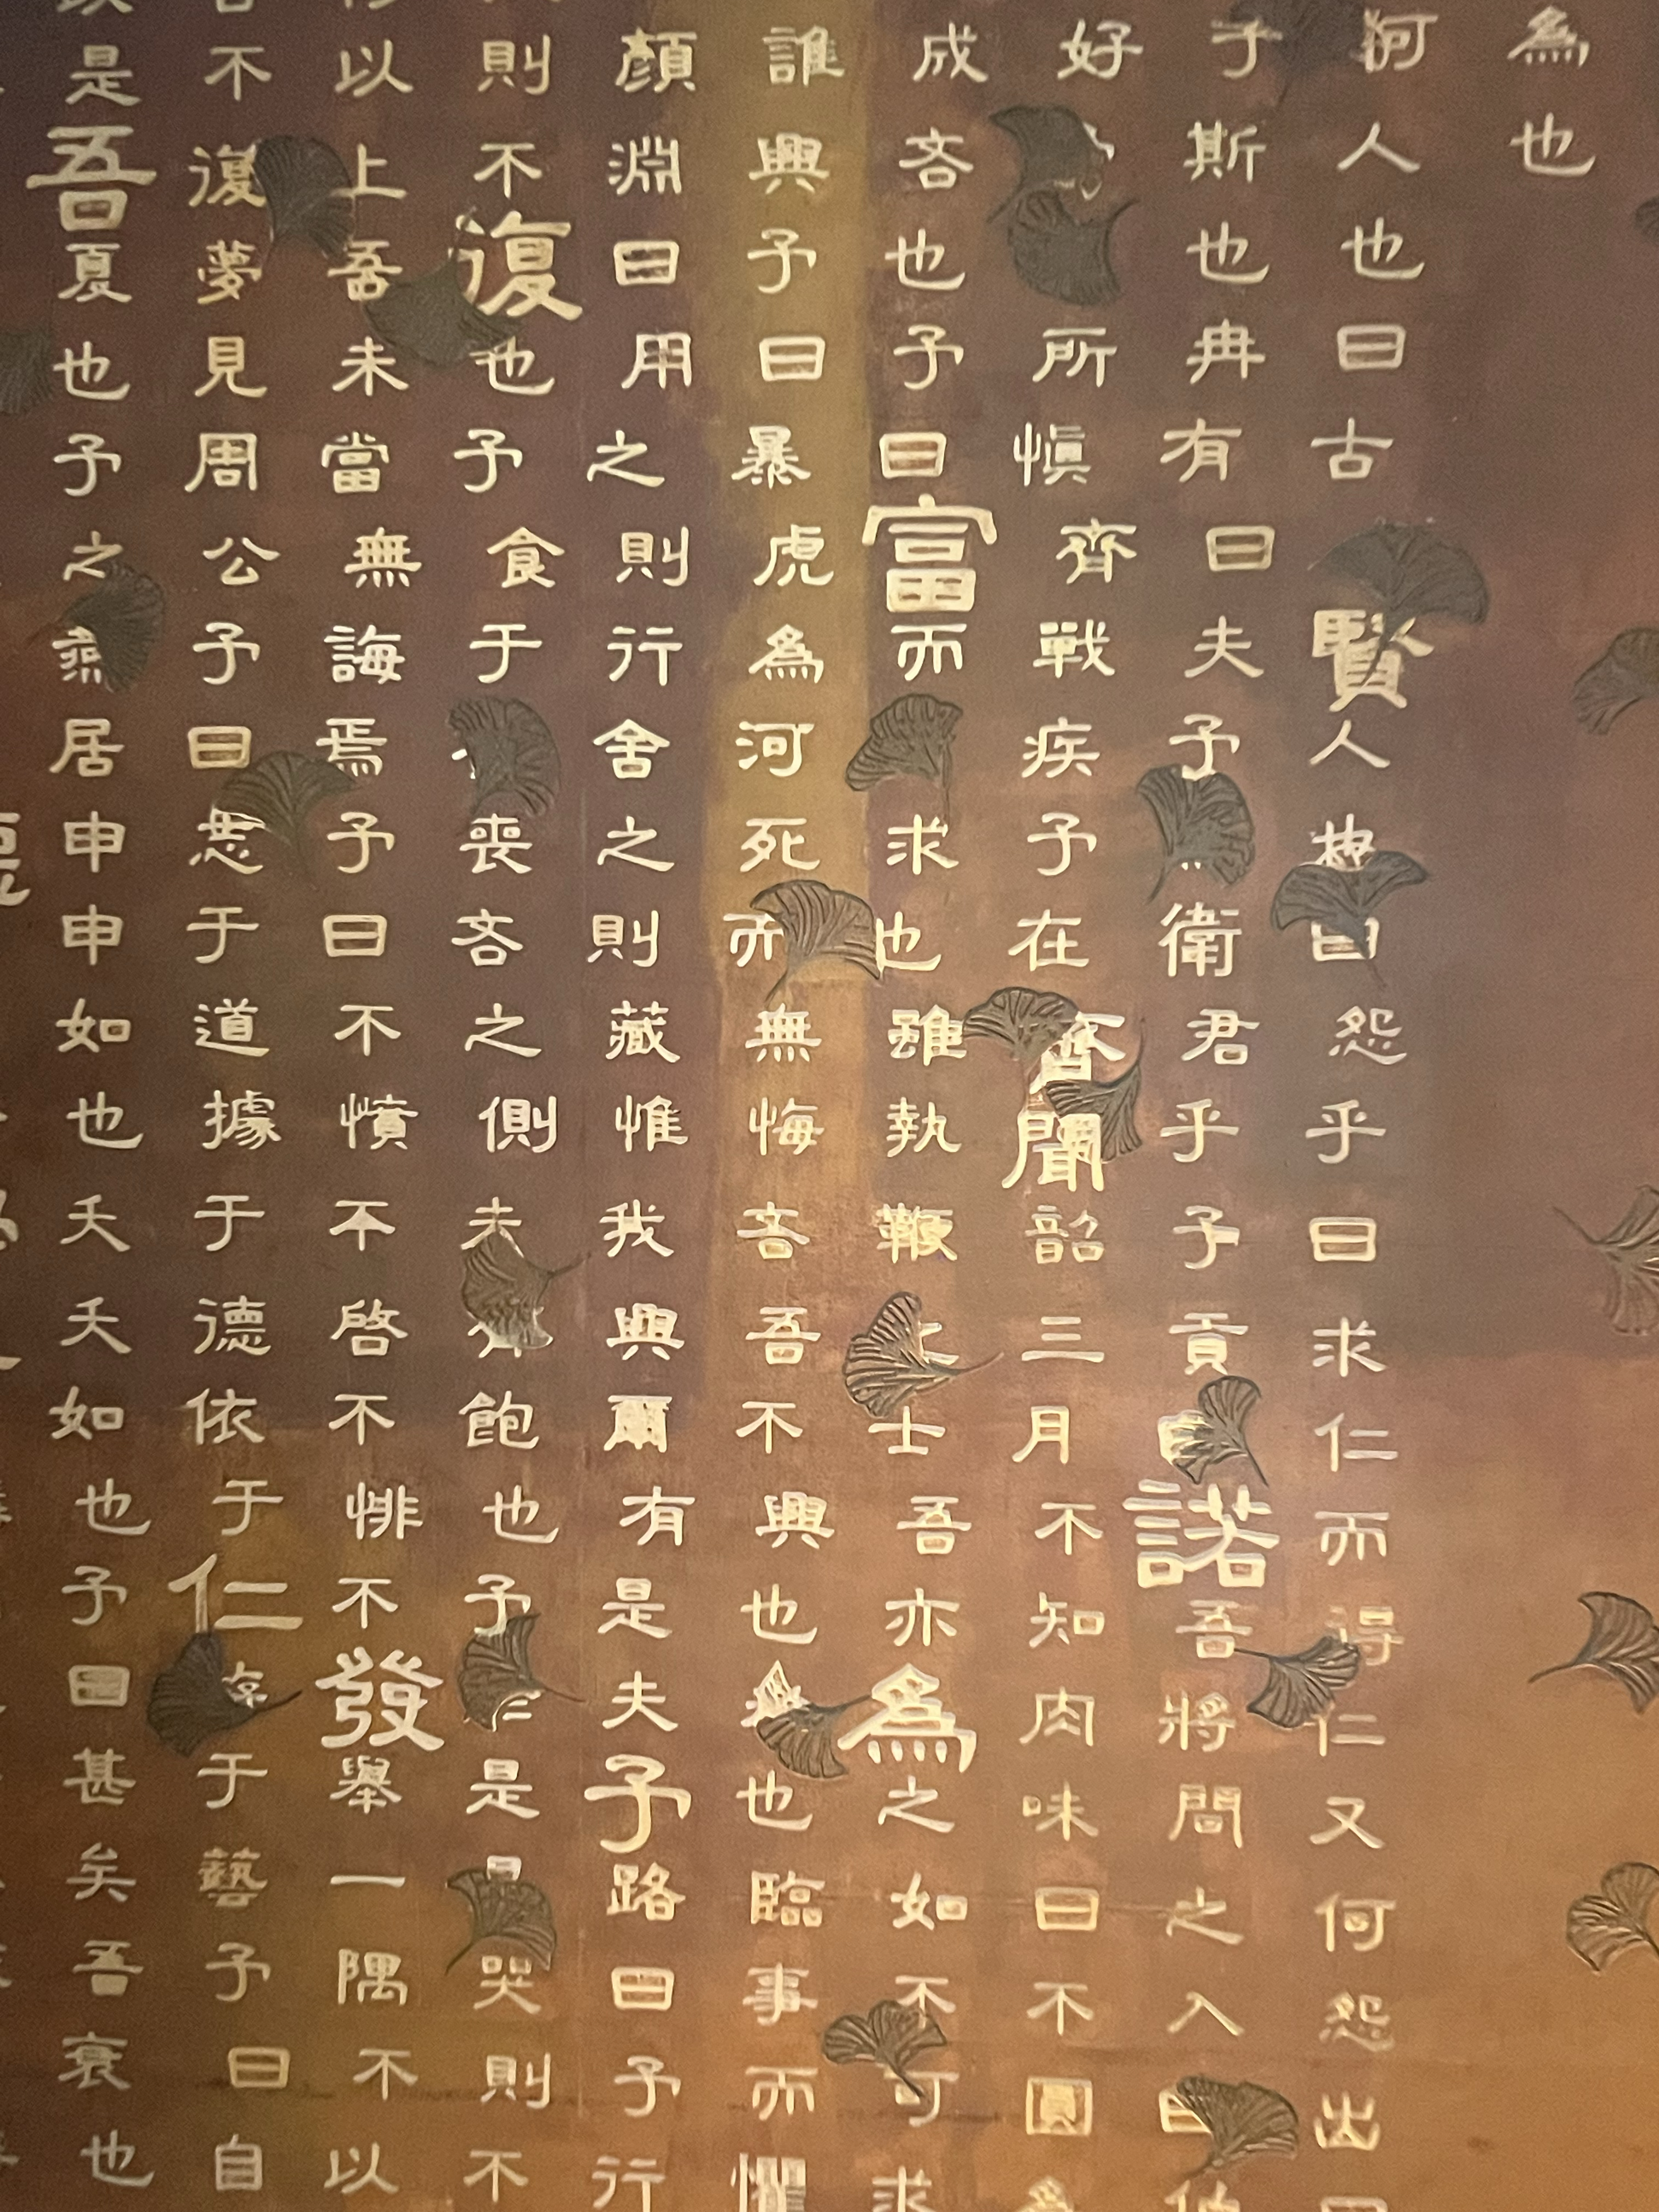 是吾夏也子之燕居申申如也夭夭如也子曰甚矣吾衰也
不復夢見周公子曰志于道據于德依于仁于藝子曰自
以上吾未當無誨焉子曰不憤不啓不悱不發舉一隅不以
則不復也子食于喪者之側未飽也子是哭則不
顏淵曰用之則行舍之則藏惟我與爾有是夫子路曰子行
誰與子曰暴虎為河死而無悔者吾不與也也臨事而懼
成者也子曰富而求也雖執鞭之士吾亦為之如不可求
好所慎齊戰疾子在齊聞韶三月不知肉味曰不圖為
于斯也冉有曰夫子衛君乎子貢曰諾吾將問之入曰伯
何人也曰古賢人也曰怨乎曰求仁而得仁又何怨出曰
為也